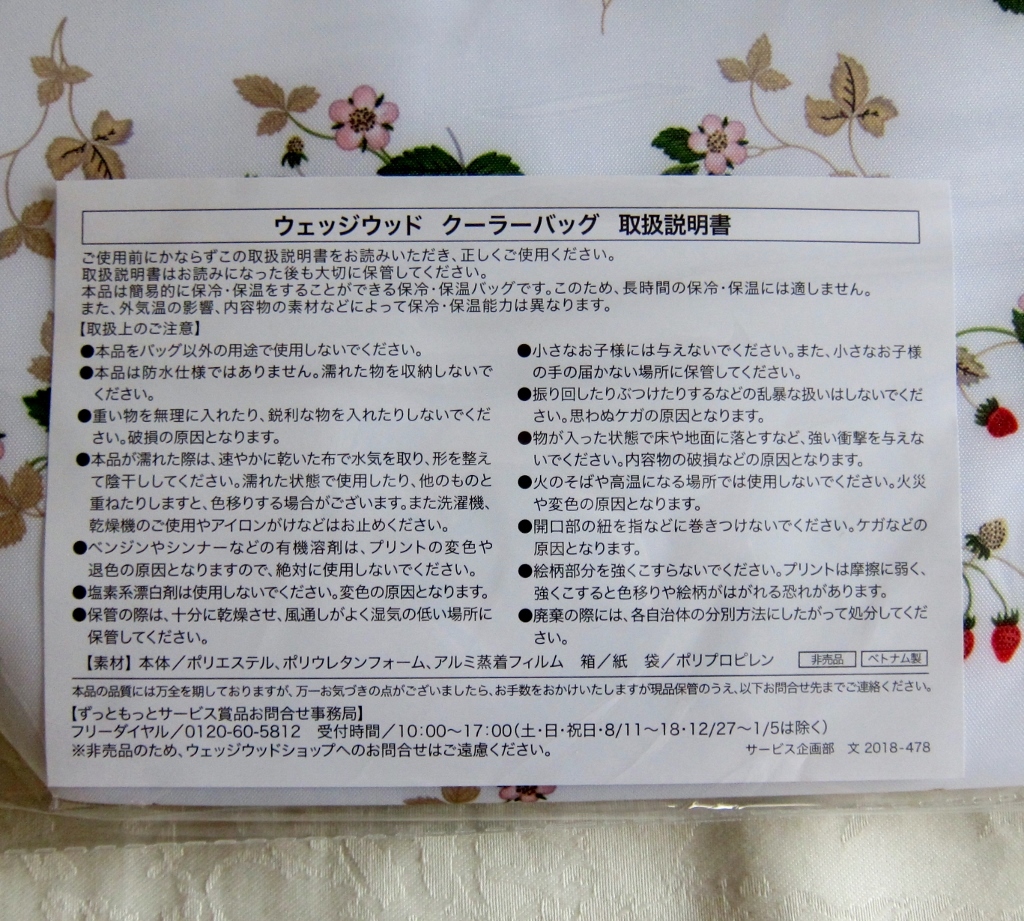 ウェッジウッド クーラーバッグ 取扱説明書
ご使用前にかならずこの取扱説明書をお読みいただき、正しくご使用ください。
取扱説明書はお読みになった後も大切に保管してください。
本品は簡易的に保冷・保温をすることができる保冷・保温バッグです。このため、長時間の保冷・保温には適しません。
また、外気温の影響、内容物の素材などによって保冷・保温能力は異なります。
【取扱上のご注意】
●本品をバッグ以外の用途で使用しないでください。
●本品は防水仕様ではありません。濡れた物を収納しないで
ください。
●重い物を無理に入れたり、鋭利な物を入れたりしないでくだ
さい。破損の原因となります。
●本品が濡れた際は、速やかに乾いた布で水気を取り、形を整え
て陰干ししてください。濡れた状態で使用したり、他のものと
重ねたりしますと、色移りする場合がございます。また洗濯機、
乾燥機のご使用やアイロンがけなどはお止めください。
●ベンジンやシンナーなどの有機溶剤は、プリントの変色や
退色の原因となりますので、絶対に使用しないでください。
●塩素系漂白剤は使用しないでください。変色の原因となります。
●保管の際は、十分に乾燥させ、風通しがよく湿気の低い場所に
保管してください。
●小さなお子様には与えないでください。また、小さなお子様
の手の届かない場所に保管してください。
●振り回したりぶつけたりするなどの乱暴な扱いはしないでくだ
さい。思わぬケガの原因となります。
●物が入った状態で床や地面に落とすなど、強い衝撃を与えな
いでください。内容物の破損などの原因となります。
●火のそばや高温になる場所では使用しないでください。火災
や変色の原因となります。
●開口部の紐を指などに巻きつけないでください。ケガなどの
原因となります。
●絵柄部分を強くこすらないでください。プリントは摩擦に弱く、
強くこすると色移りや絵柄がはがれる恐れがあります。
●廃棄の際には、各自治体の分別方法にしたがって処分してくだ
さい。
【素材】本体／ポリエステル、ポリウレタンフォーム、アルミ蒸着フィルム 箱／紙 袋／ポリプロピレン 非売品 ベトナム製
本品の品質には万全を期しておりますが、万一お気づきの点がございましたら、お手数をおかけいたしますが現品保管のうえ、以下お問合せ先までご連絡ください。
【ずっともっとサービス賞品お問合せ事務局】
フリーダイヤル／0120-60-5812 受付時間／10:00〜17:00（土・日・祝日・8/11〜18・12/27〜1/5は除く）
※非売品のため、ウェッジウッドショップへのお問合せはご遠慮ください。 サービス企画部 文 2018-478